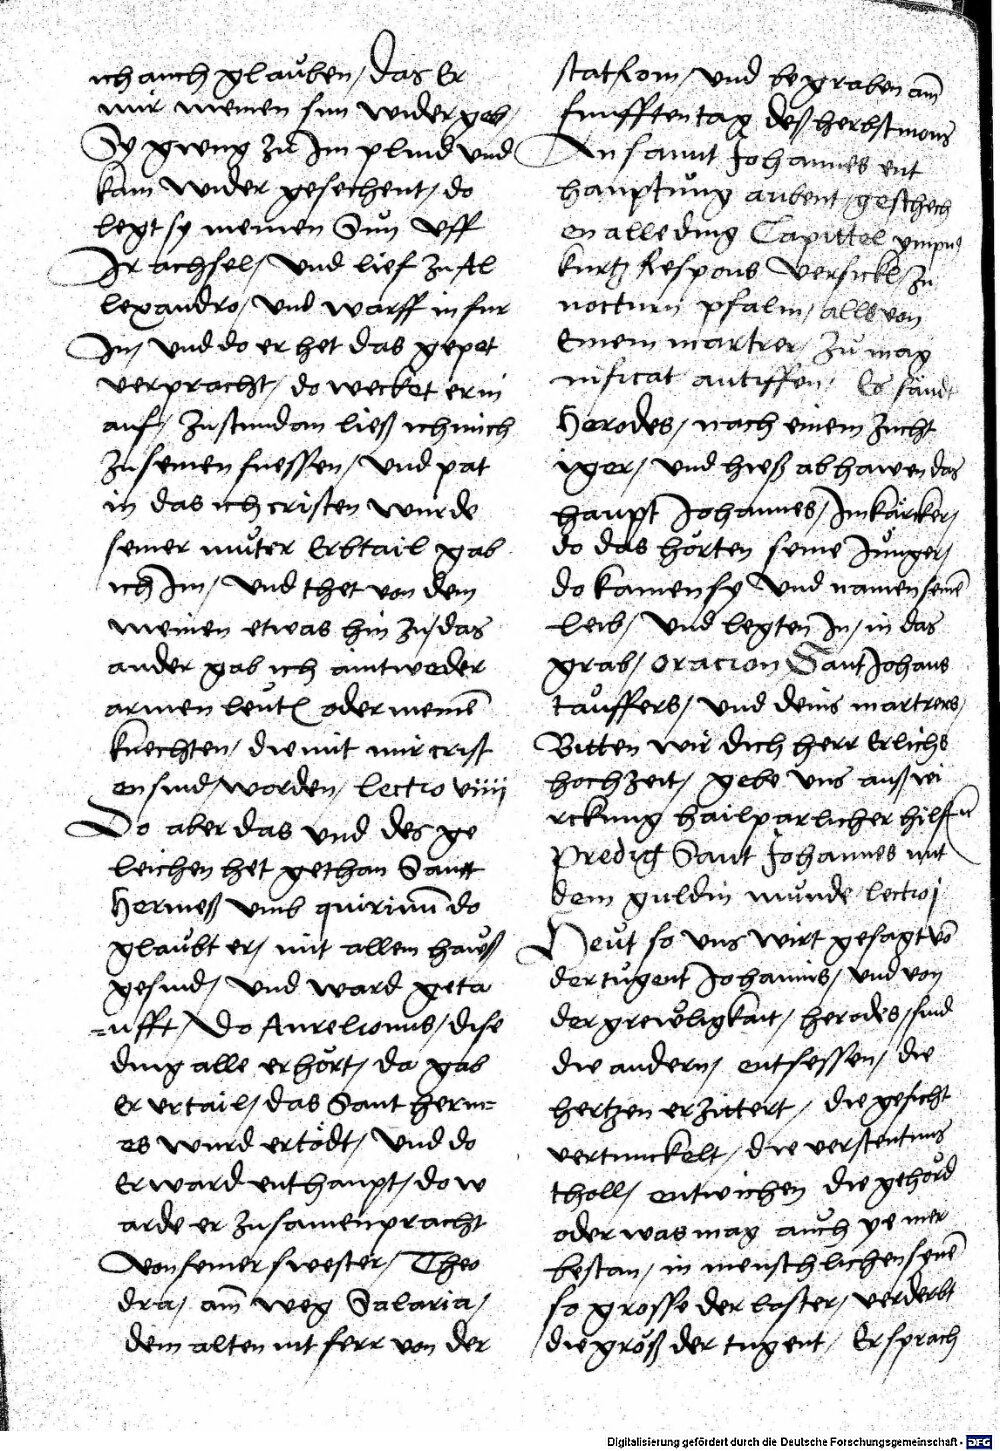 ich auch glauben/ das Er
mir meinen sun wider geb/
Sy gieng zu Im plind und
kam wider gesechent/ do
legt sy meinen Sun uff
Ir achsel/ und lief zu Al
lexandro/ und warff in fur
In/ und do er het das gepet
verpracht/ do wecket er in
auf/ zu stund an ließ ich mich
zu seinen fuessen/ und pat
in das ich cristen wurde
seiner muter Erbtail gab
ich Im/ und thet von dem
meinen etwas hin zu/ das
ander gab ich aintweder
armen leut oder meinē
knechten/ die mit mir crist
en sind/ worden/ lectio viiii
Do aber das und des ge
leichen het gethan Sant
Hermeß umb quirinū do
glaubt er/ mit allem hauß
gesind/ und ward geta
=ufft/ Do Aurelionus/ dise
ding alle erhört/ da gab
Er urtail/ das Sant herm=
es wurd ertödt/ und do
Er ward enthaupt/ do w
arde er zu samen pracht
von seiner swester/ Theo
dra/ am weg Salaria/
dem alten nit ferr von der
stat Rom/ und begraben am
funfften tag deß herbstmons
An sannt Johannes ent
hauptung aubent/ geschech
en alle ding Capittel ympnus
kurtz Respons versickl/ zu
nocturn psalm/ alle von
Einem martrer/ zu mag
nificat antiffen/ Es sandt
Herodes/ nach einem zücht
iger/ und hieß abhawen das
haupt Johannes/ Im kärcker/
do das hörten seine Junger/
do kamen sy und namen seinē
Leib/ und legten In/ in das
grab/ oracion Sant Johans
tauffers/ und deins martrers/
Bitten wir dich herr Erlichs
hochzeit/ gebe uns auß wi
rckung hailparlicher hilff
Predig Sant Johannes mit
dem guldin munde/ lectio j
Heut so uns wirt gesagt võ
der tugent Johannis/ und von
der greuligkait/ herodes/ sind
die andern/ entsessen/ die
hertzen erzittert/ die gesicht
vertunckelt/ die verstentnus
tholl/ entwichen die gehörd
oder was mag auch ye mer
bestan/ in menschlichen synē
so grosse der laster/ verderbt
die größ der tugent/ Er sprach
Digitalisierung gefördert durch die Deutsche Forschungsgemeinschaft - DFG